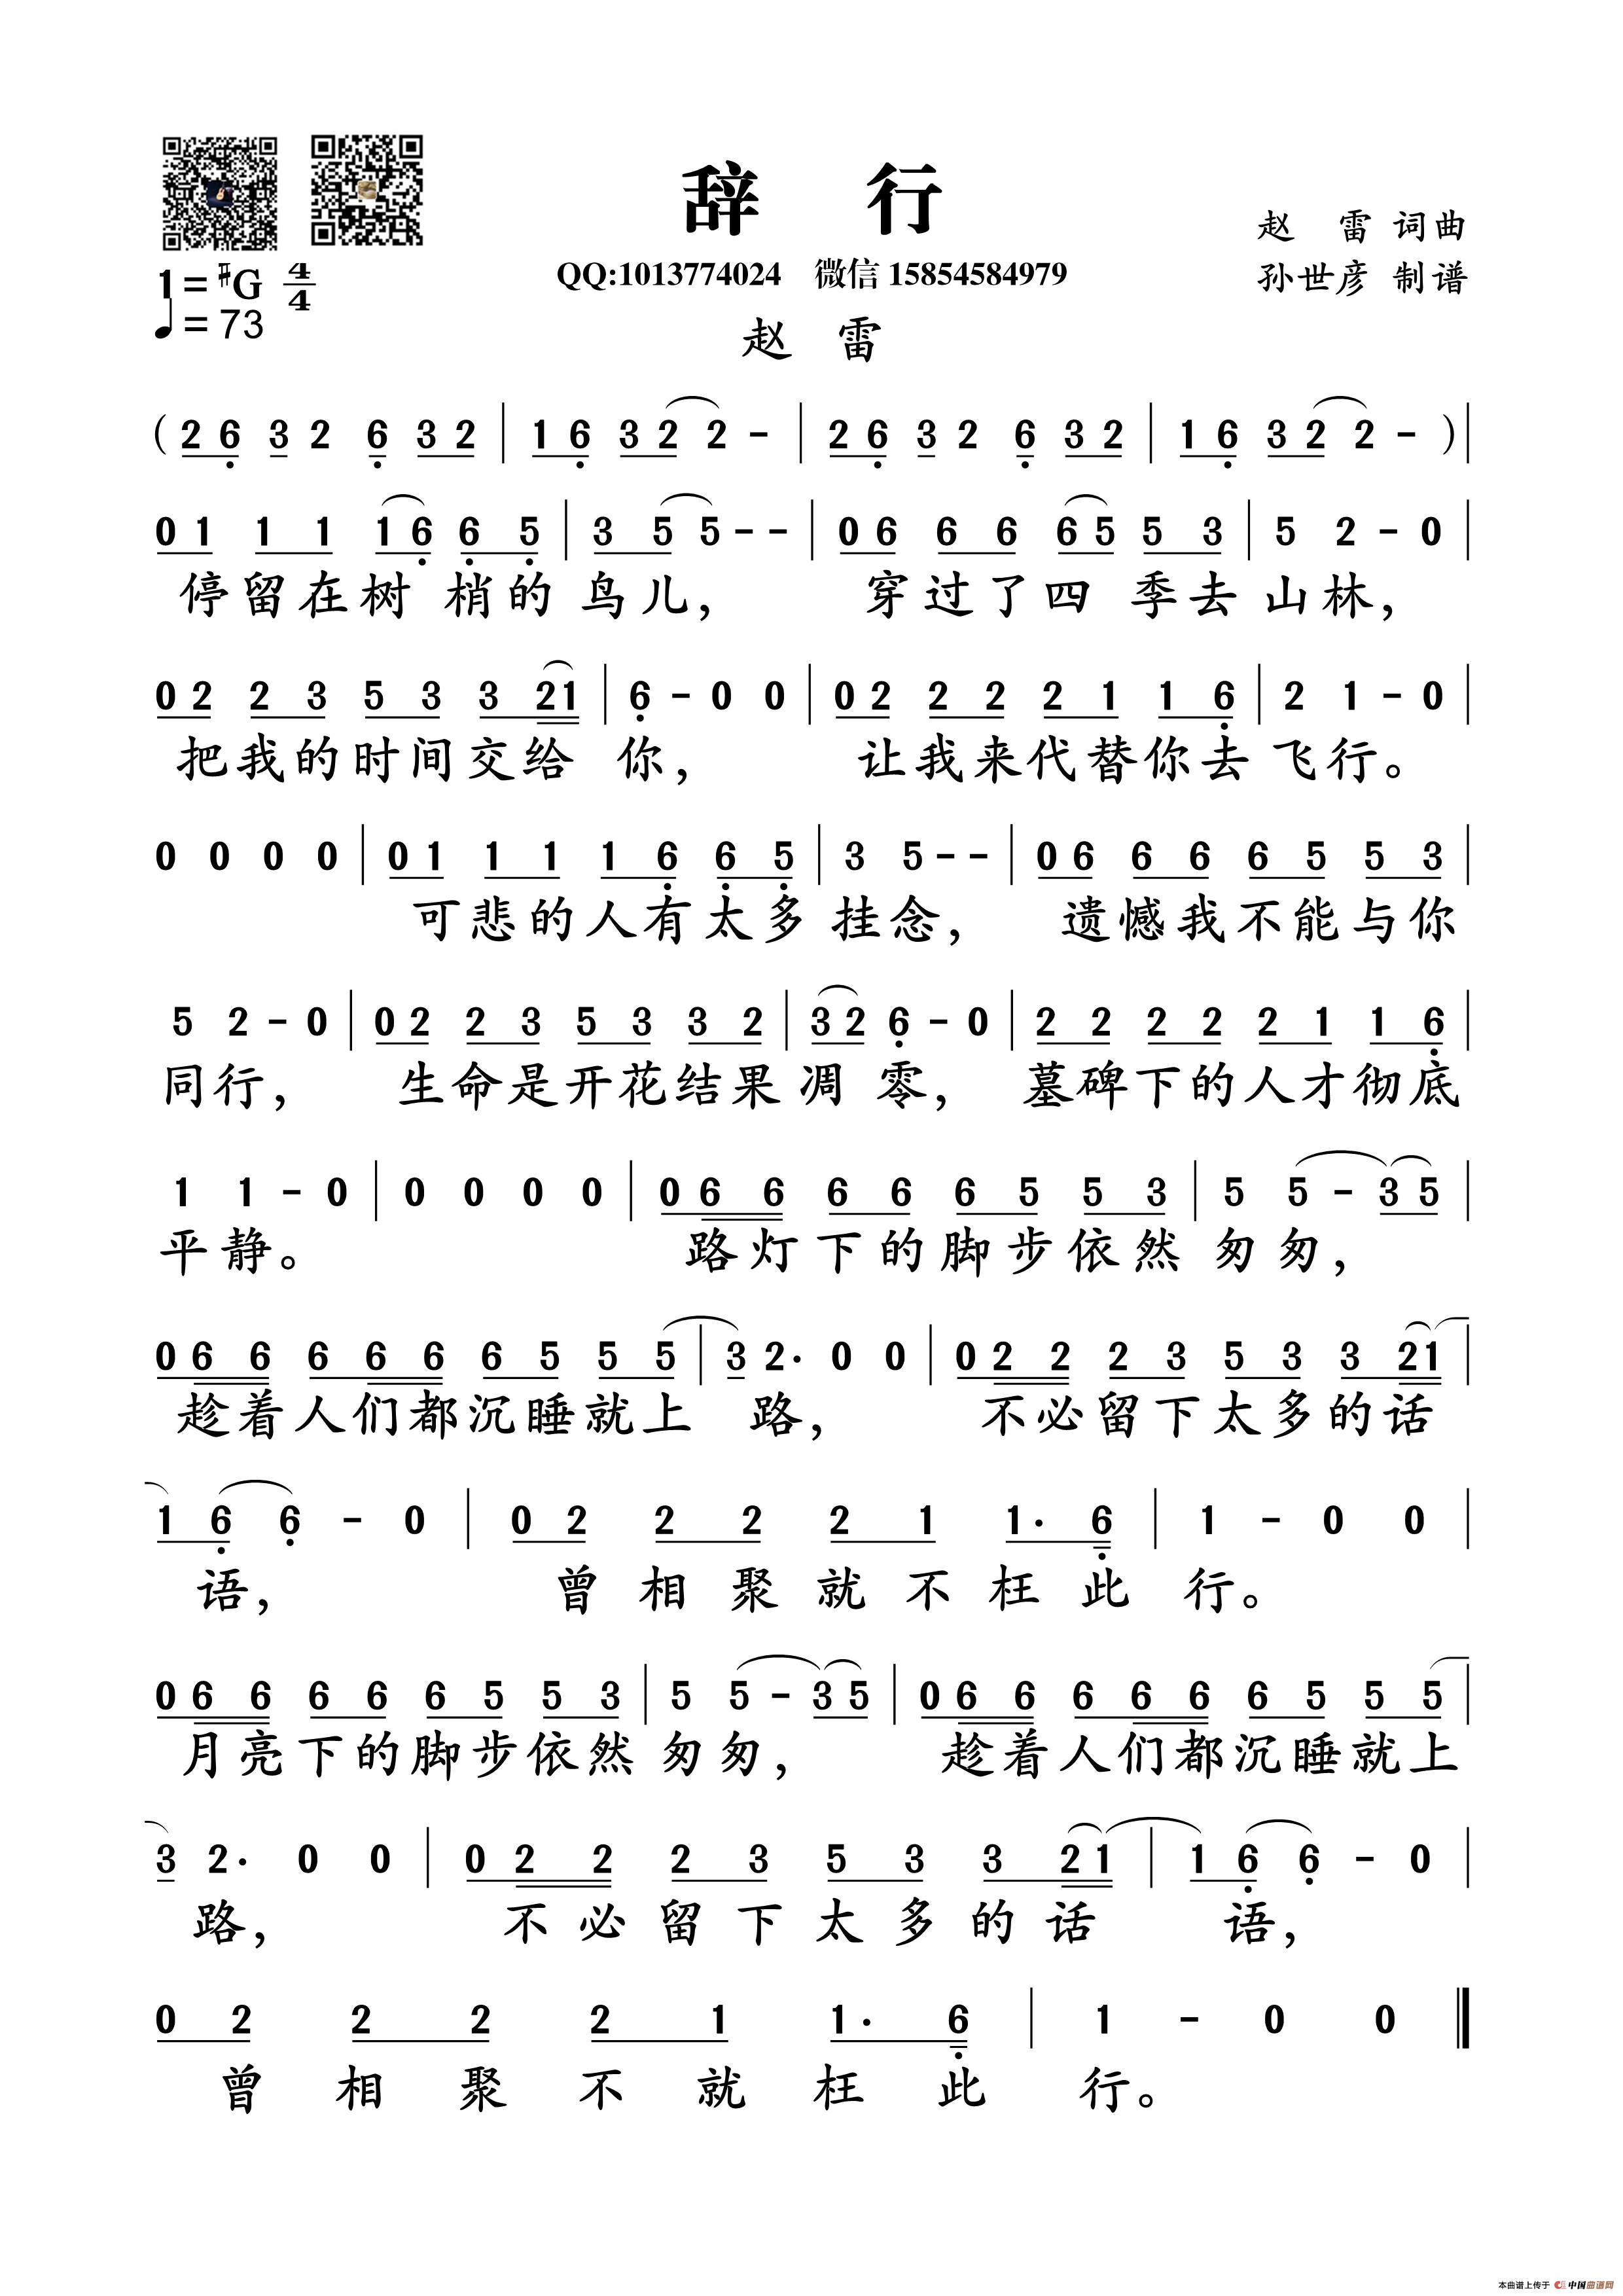 辞 行
赵 雷 词曲
QQ:1013774024 微信 15854584979
孙世彦 制谱
1=#G 4/4
♩=73
赵 雷
( 2 6 3 2 6 3 2 | 1 6 3 2 2 - | 2 6 3 2 6 3 2 | 1 6 3 2 2 - ) |
0 1 1 1 1 6 6 5 | 3 5 5 - - | 0 6 6 6 6 5 5 3 | 5 2 - 0 |
停留在树 梢的 鸟儿, 穿过了四 季去 山林,
0 2 2 3 5 3 3 2 1 | 6 - 0 0 | 0 2 2 2 2 1 1 6 | 2 1 - 0 |
把我的时间交给 你, 让我来代替你去 飞行。
0 0 0 0 | 0 1 1 1 1 6 6 5 | 3 5 - - | 0 6 6 6 6 5 5 3 |
可悲的人有太多 挂念, 遗憾我不能与你
5 2 - 0 | 0 2 2 3 5 3 3 2 | 3 2 6 - 0 | 2 2 2 2 2 1 1 6 |
同行, 生命是开花结果 凋 零, 墓碑下的人才彻底
1 1 - 0 | 0 0 0 0 | 0 6 6 6 6 6 5 5 3 | 5 5 - 3 5 |
平静。 路灯下的脚步依然 匆匆,
0 6 6 6 6 6 6 5 5 5 | 3 2. 0 0 | 0 2 2 2 3 5 3 3 2 1 |
趁着人们都沉睡就上 路, 不必留下太多的话
1 6 6 - 0 | 0 2 2 2 2 1 1. 6 | 1 - 0 0 |
语, 曾相聚就不枉此 行。
0 6 6 6 6 6 5 5 3 | 5 5 - 3 5 | 0 6 6 6 6 6 6 5 5 5 |
月亮下的脚步依然 匆匆, 趁着人们都沉睡就上
3 2. 0 0 | 0 2 2 2 3 5 3 3 2 1 | 1 6 6 - 0 |
路, 不必留下太多的话 语,
0 2 2 2 2 1 1. 6 | 1 - 0 0 ‖
曾相聚不就枉此 行。
本曲谱上传于 中国曲谱网